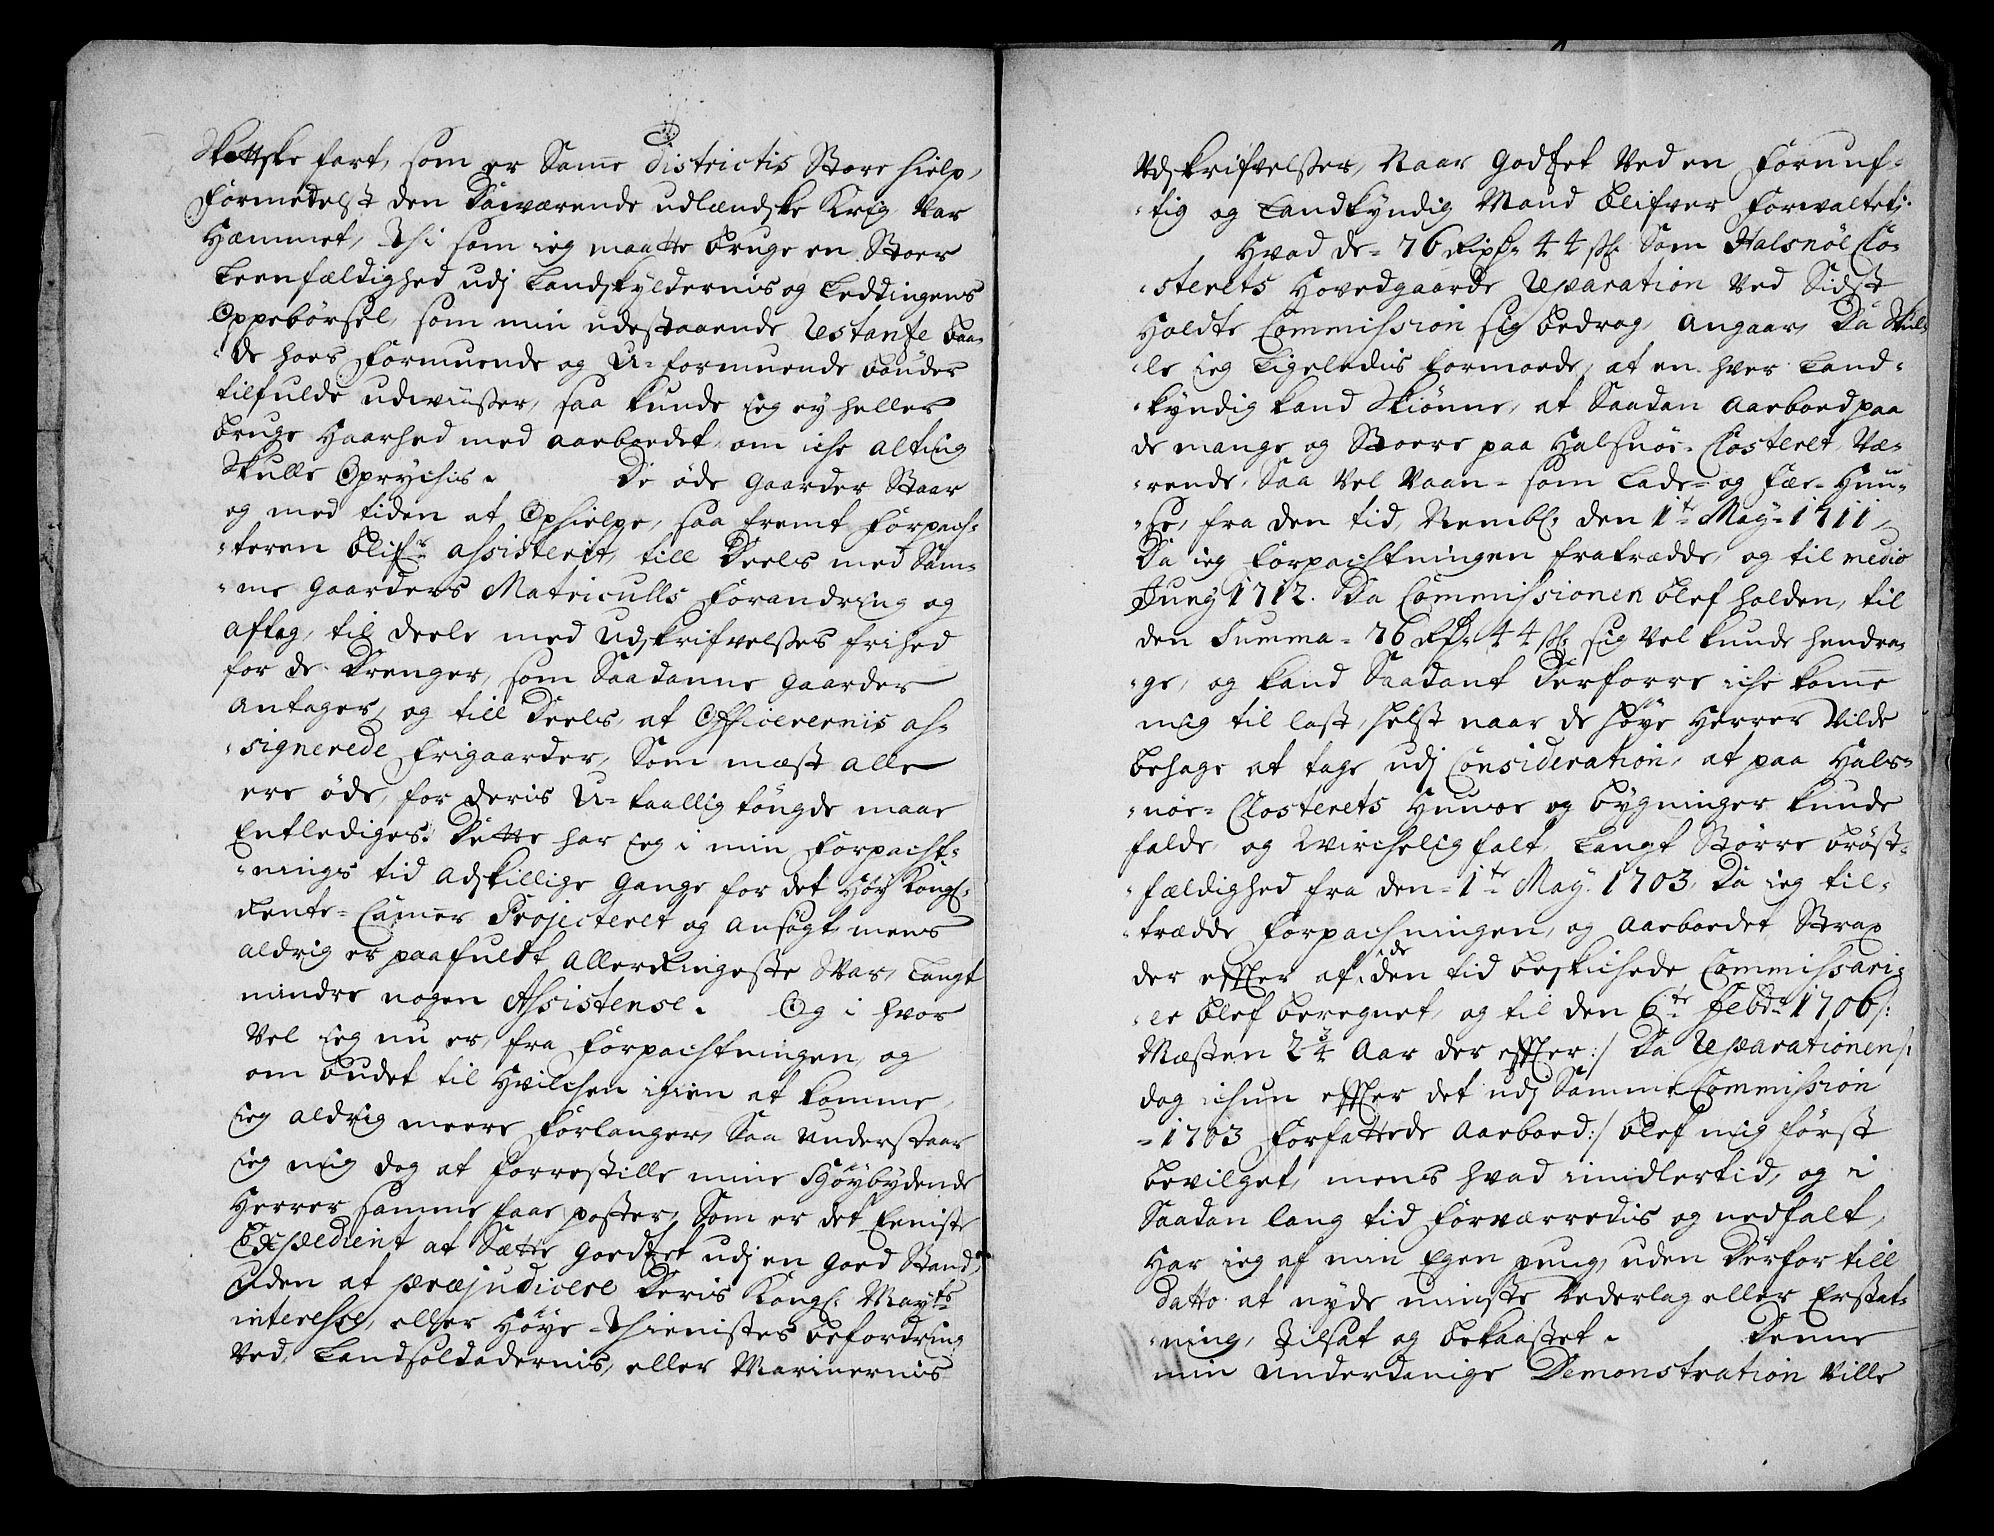 Skottske fart, som er Same Districtis Store hielp,
formedelst den Daværende udlændske Krig var
Hæmmet, Thi som ieg maatte bruge en Stoer
Leenfældighed udj Landskyldernis og Leddingens
Oppebörsel, som min udestaaende Restantze baa-
de hoes formuende og U-formuende bönder
tilfulde udwiisser, saa kunde ieg ey heller
bruge Haarhed med aarboedet, om iche alting
Skulle Oprychis. De öde gaarder Staar
og med tiden at Ophielpe, saa fremt Forpach-
teren blifr assisterit, till Deels med Sam-
me gaarders Matriculls Forandring og
aftag, til deels med udskrifvelsses frihed
for de Drenger, som Saadanne gaarder
antager, og till Deels, at Officerernis as-
signerede Frigaarder, Som mest alle
ere öde, for deris U-taallig töngde maae
Entlediges. Dette har ieg i min Forpacht-
nings tid adskillige gange for det Høy Kongl:
Rente-Camer Projecteret og ansögt, mens
aldrig er paafuldt allerringeste Svar, Langt
mindre nogen Assistense. Og i hvor
vel ieg nu er, fra Forpachtningen, og
om budet til hvilchen igien at komme,
ieg aldrig meere Forlanger, Saa understaar
ieg mig dog at forrestille mine Høybydende
Herrer samme faae poster, Som er det Eeniste
Expedient at Sætte goedtzet udj en goed Stand,
uden at præjudicere Deris Kongl: Mayts
interesse, eller Høye Thienistes befordring
ved Landsoldadernis, eller Marinernis
Udskrifvelsser, Naar godtzet ved en Fornuf-
tig og Landkyndig Mand blifver forvaltet.
Hvad de 76 Rixdr 44 ss: Som Halsnöe Clo-
sterets Hovedgaards Reparation ved Sidst
Holdte Commission sig bedrog, angaar, Da Skul-
le ieg Ligeledis formoede, at en hver Land-
kyndig kand Skiönne, at Saadan aarboed paa
de mange og Stoere paa Halsnöe-Closteret Væ-
rende, Saa vel Vaan- som Lade- og Fæe-Huu-
se, fra den tid, Nembl: den 1te May 1711,
Da ieg Forpachtningen fratrædde, og til medio
Juny 1712. Da Commissionen blef holden, til
den Summa 76 Rdr 44 ss: sig vel kunde hendra-
ge, og kand Saadant Derforre iche komme
mig til last, helst naar de høye Herrer Vilde
behage at tage udj Consideration, at paa Hals-
nöe-Closterets Huuse og bygninger kunde
falde, og Wirchelig falt, Langt Större bröst-
fældighed fra den 1te May 1703, Da ieg til-
trædde Forpachningen, og aarboedet Strax
der effter af de i den tid beskichede Commissari-
er blef beregnet, og til den 6te Febr: 1706 /:
Mesten 2 3/4 Aar der effter :/ Da Reparationen /:
dog ichun effter det udj Samme Commission
1703 Forfattede aarboed :/ blef mig först
bevilget, mens hvad imidlertid, og i
Saadan lang tid forværredis og nedfalt,
Har ieg af min Egen pung, uden Derfor till
datto at nyde minste Vederlag eller Erstat-
ning, Tilsat og bekaastet. Denne
min underdanige Demonstration Ville